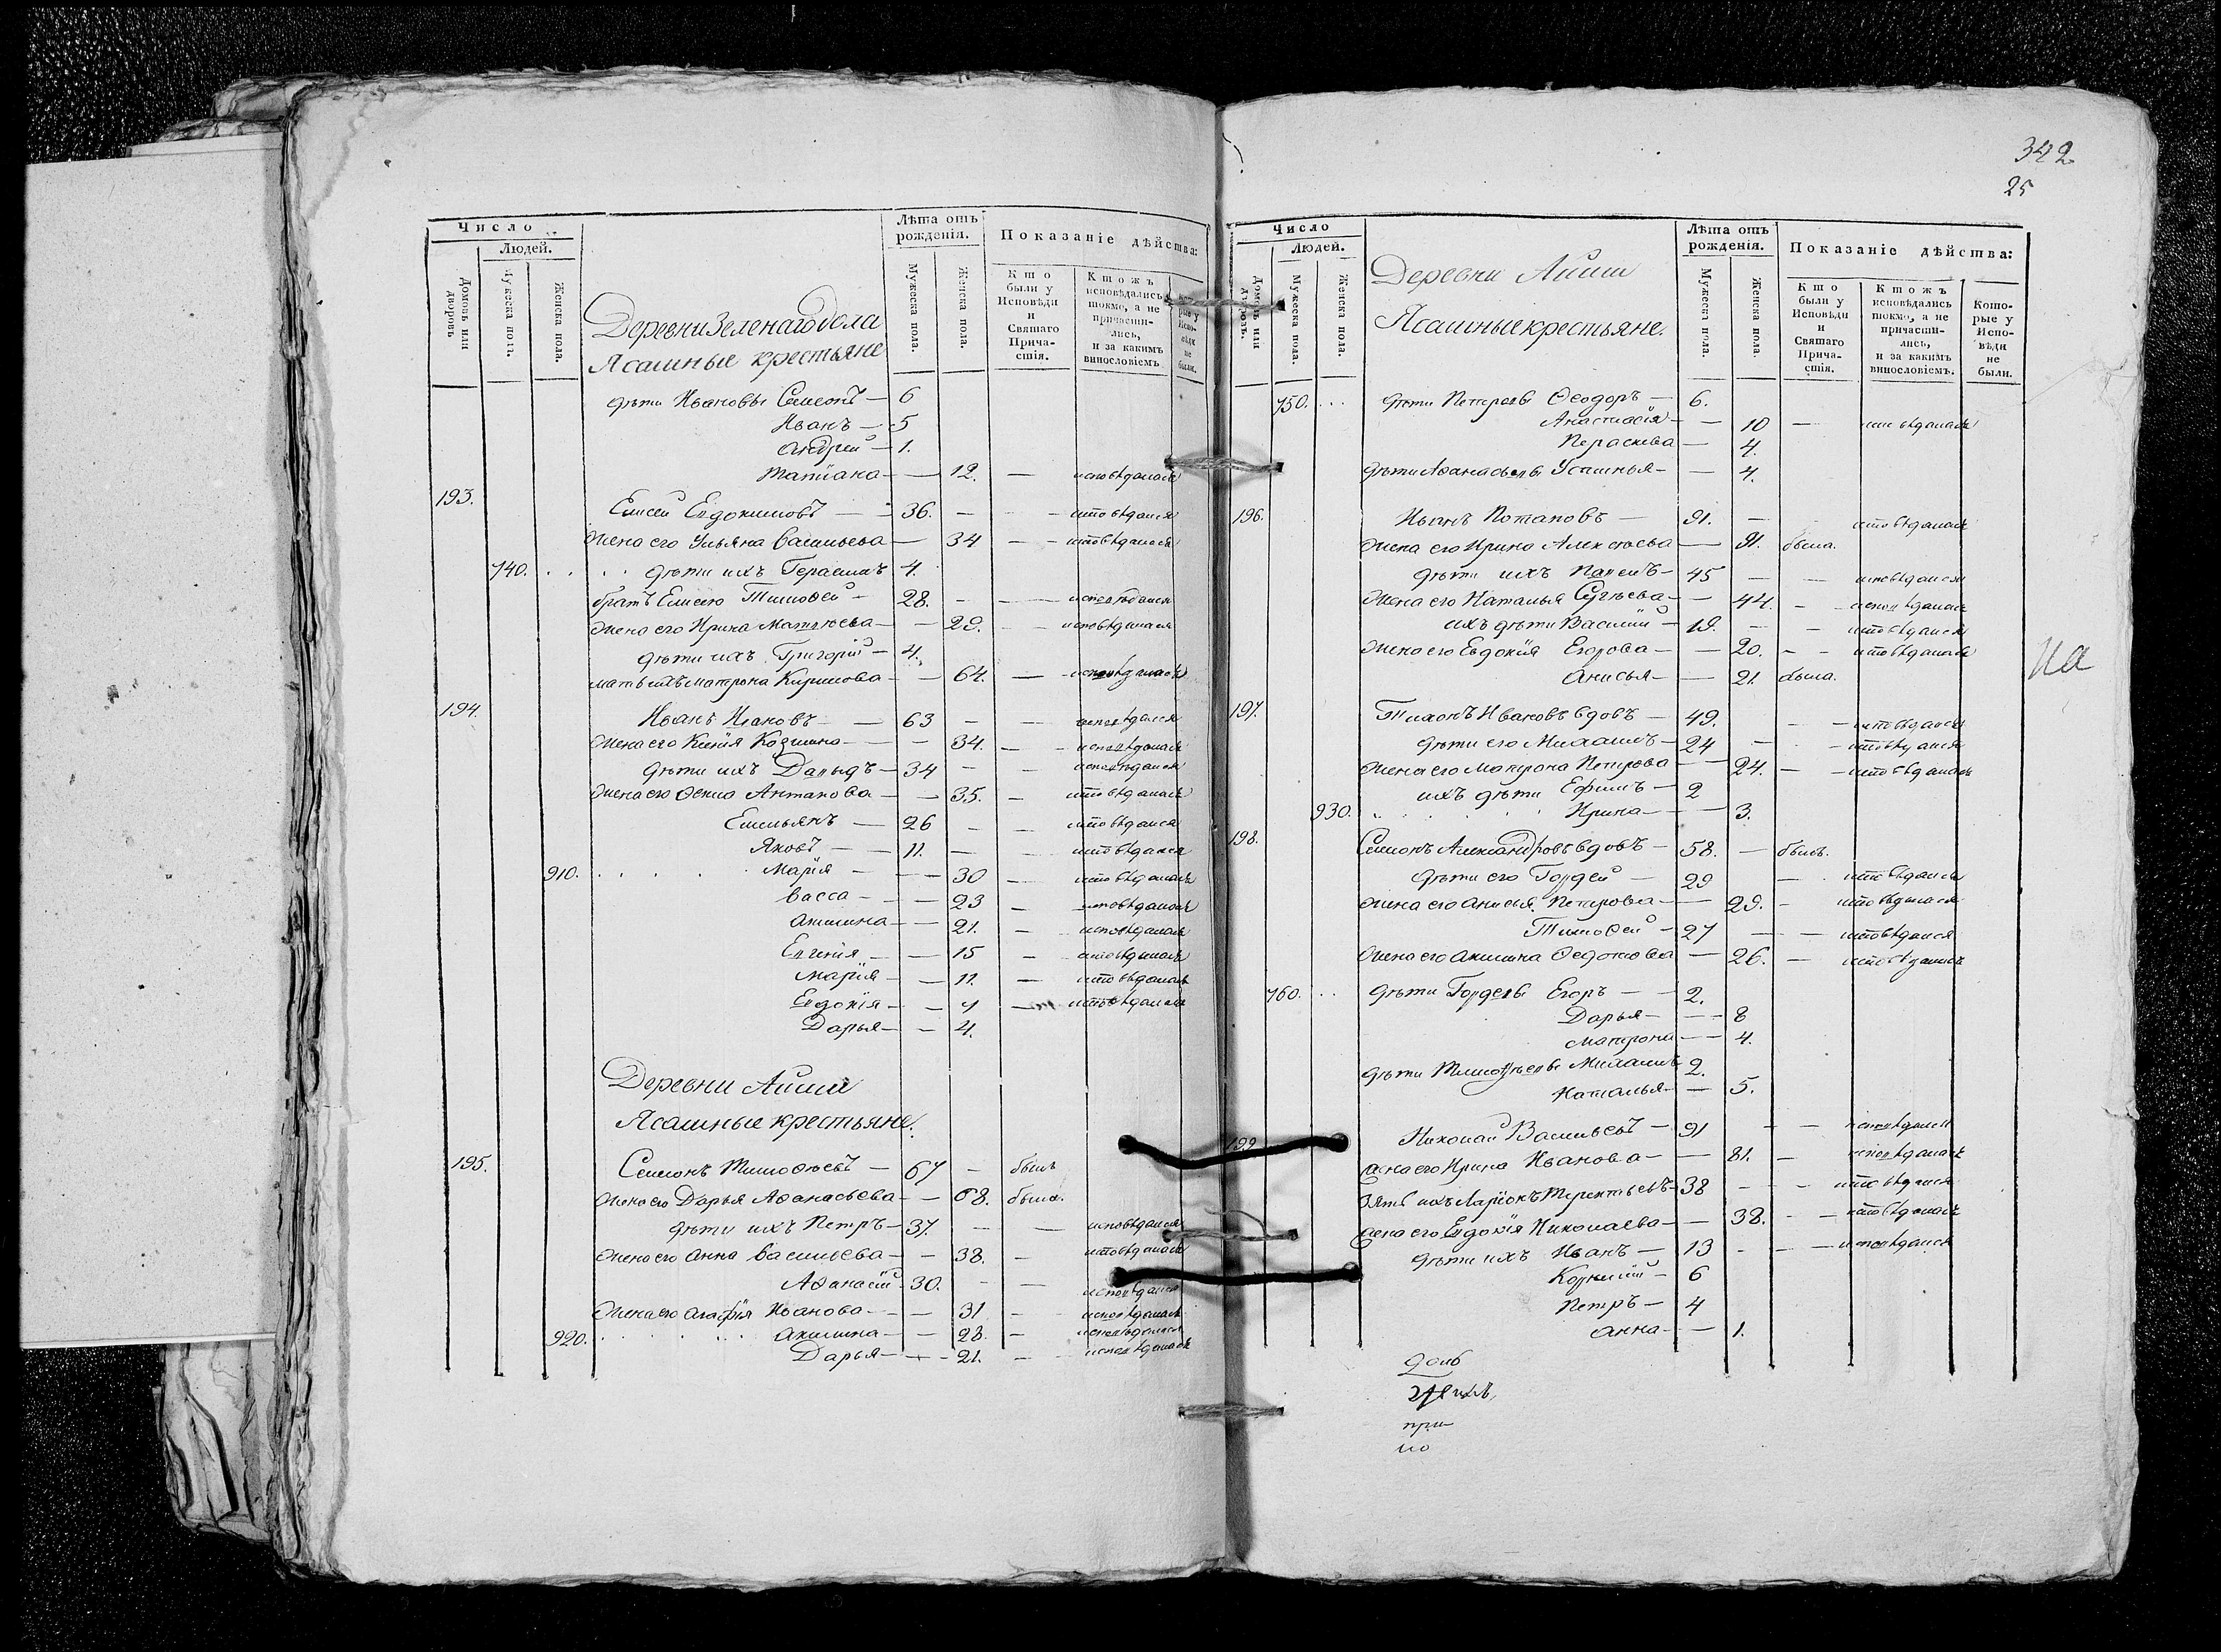 Число
Людей.
Домовъ или дворовъ
Мужеска пола.
Женска пола.
Деревни Зеленаго дола
Ясашные крестьяне
Лѣта отъ рожденія.
Мужеска пола.
Женска пола.
Показаніе дѣйства:
Кто были у Исповѣди и Святаго Прича-стія.
Ктожъ исповѣдались токмо, а не причасти-лись, и за какимъ винословіемъ
рые у Испо-вѣди не были.
дѣти Ивановы Семенъ — 6
Иванъ — 5
Андрей — 1.
Татіана — — 12. — исповѣдалась
193.
Елисей Евдокимовъ — 36. — — исповѣдался
Жена его Ульяна Васильева — 34 — — исповѣдалася
740. . . . дѣти ихъ Герасимъ 4.
братъ Елисею Тимоѳей — 28. — — исповѣдался
Жена его Ирина Матвѣева — — 29. — исповѣдалася
дѣти ихъ Григорій — 4.
мать ихъ Матрона Кирилова — — 64. — исповѣдалась
194.
Иванъ Ивановъ — 63 — — исповѣдался
Жена его Козмина — — 34. — исповѣдалася
дѣти ихъ Давыдъ — 34 — — исповѣдался
Жена его Антапова — — 35. — исповѣдалась
Емельянъ — 26 — — исповѣдался
Яковъ — 11. — — исповѣдался
910. . . . . Марія — — 30 — исповѣдалась
Васса — — 23 — исповѣдалась
Акилина — — 21. — исповѣдалась
Евгенія — — 15 — исповѣдалась
Марія — — 11. — исповѣдалась
Евдокія — — 7 — исповѣдалась
Дарья — — 4.
Деревни Айши
Ясашные крестьяне.
195.
Семенъ Тимоѳѣевъ — 67 — былъ
Жена его Дарья Аѳанасьева — — 68. была.
дѣти ихъ Петръ — 37. — — исповѣдался
Жена его Анна Васильева — — 38. — исповѣдалась
Аѳанасій — 30. — — исповѣдался
Жена его Агафія Иванова — — 31 — исповѣдалась
920. . . . . . Акилина — — 28. — исповѣдалася
Дарья — — 21. — исповѣдалась
342
25
Число
Людей.
Домовъ или дворовъ.
Мужеска пола.
Женска пола.
Деревни Айши
Ясашные крестьяне.
Лѣта отъ рожденія.
Мужеска пола.
Женска пола.
Показаніе дѣйства:
Кто были у Исповѣди и Святаго Прича-стія.
Ктожъ исповѣдались токмо, а не причасти-лись, и за какимъ винословіемъ.
Кото-рые у Испо-вѣди не были.
750. . . . дѣти Петровы Ѳеодоръ — 6.
Анастасія — — 10 — исповѣдалась
Параскева — 4.
дѣти Аѳанасьевы Устинья — — 4.
196.
Иванъ Потаповъ — 91. — исповѣдался
Жена его Ирина Алексѣева — 91. была.
дѣти ихъ Павелъ — 45 — — исповѣдался
Жена его Наталья Сергѣева — — 44. — исповѣдалась
ихъ дѣти Василій — 19. — — исповѣдался
Жена его Евдокія Егорова — — 20. — — исповѣдалась
Анисья — — 21. была.
на
197.
Тихонъ Ивановъ вдовъ — 49. — — исповѣдался
дѣти его Михаилъ — 24 — — исповѣдался
Жена его Матрона Петрова — — 24. — исповѣдалась
ихъ дѣти Ефимъ — 2
930. . . . . Ирина — — 3.
198.
Семенъ Александровъ вдовъ — 58. — былъ.
дѣти его Гордей — 29 — исповѣдался
Жена его Анисья Петрова — — 29. — исповѣдалася
Тимоѳей — 27 — — исповѣдался
Жена его Акилина Ѳедотова — 26. — исповѣдалась
760. . . дѣти Гордеевы Егоръ — — 2.
Дарья — — — 8
Матрона — — 4.
дѣти Тимоѳѣевы Михаилъ 2.
Наталья — — 5.
199
Николай Васильевъ — 91 — — исповѣдался
жена его Ирина Иванова — — 81. — исповѣдалась
Зять ихъ Ларіонъ Терентьевъ — 38 — — исповѣдался
жена его Евдокія Николаева — — 38. — — исповѣдалась
дѣти ихъ Иванъ — 13 — — исповѣдался
Корнилій — 6
Петръ — 4
Анна — — 1.
при
но